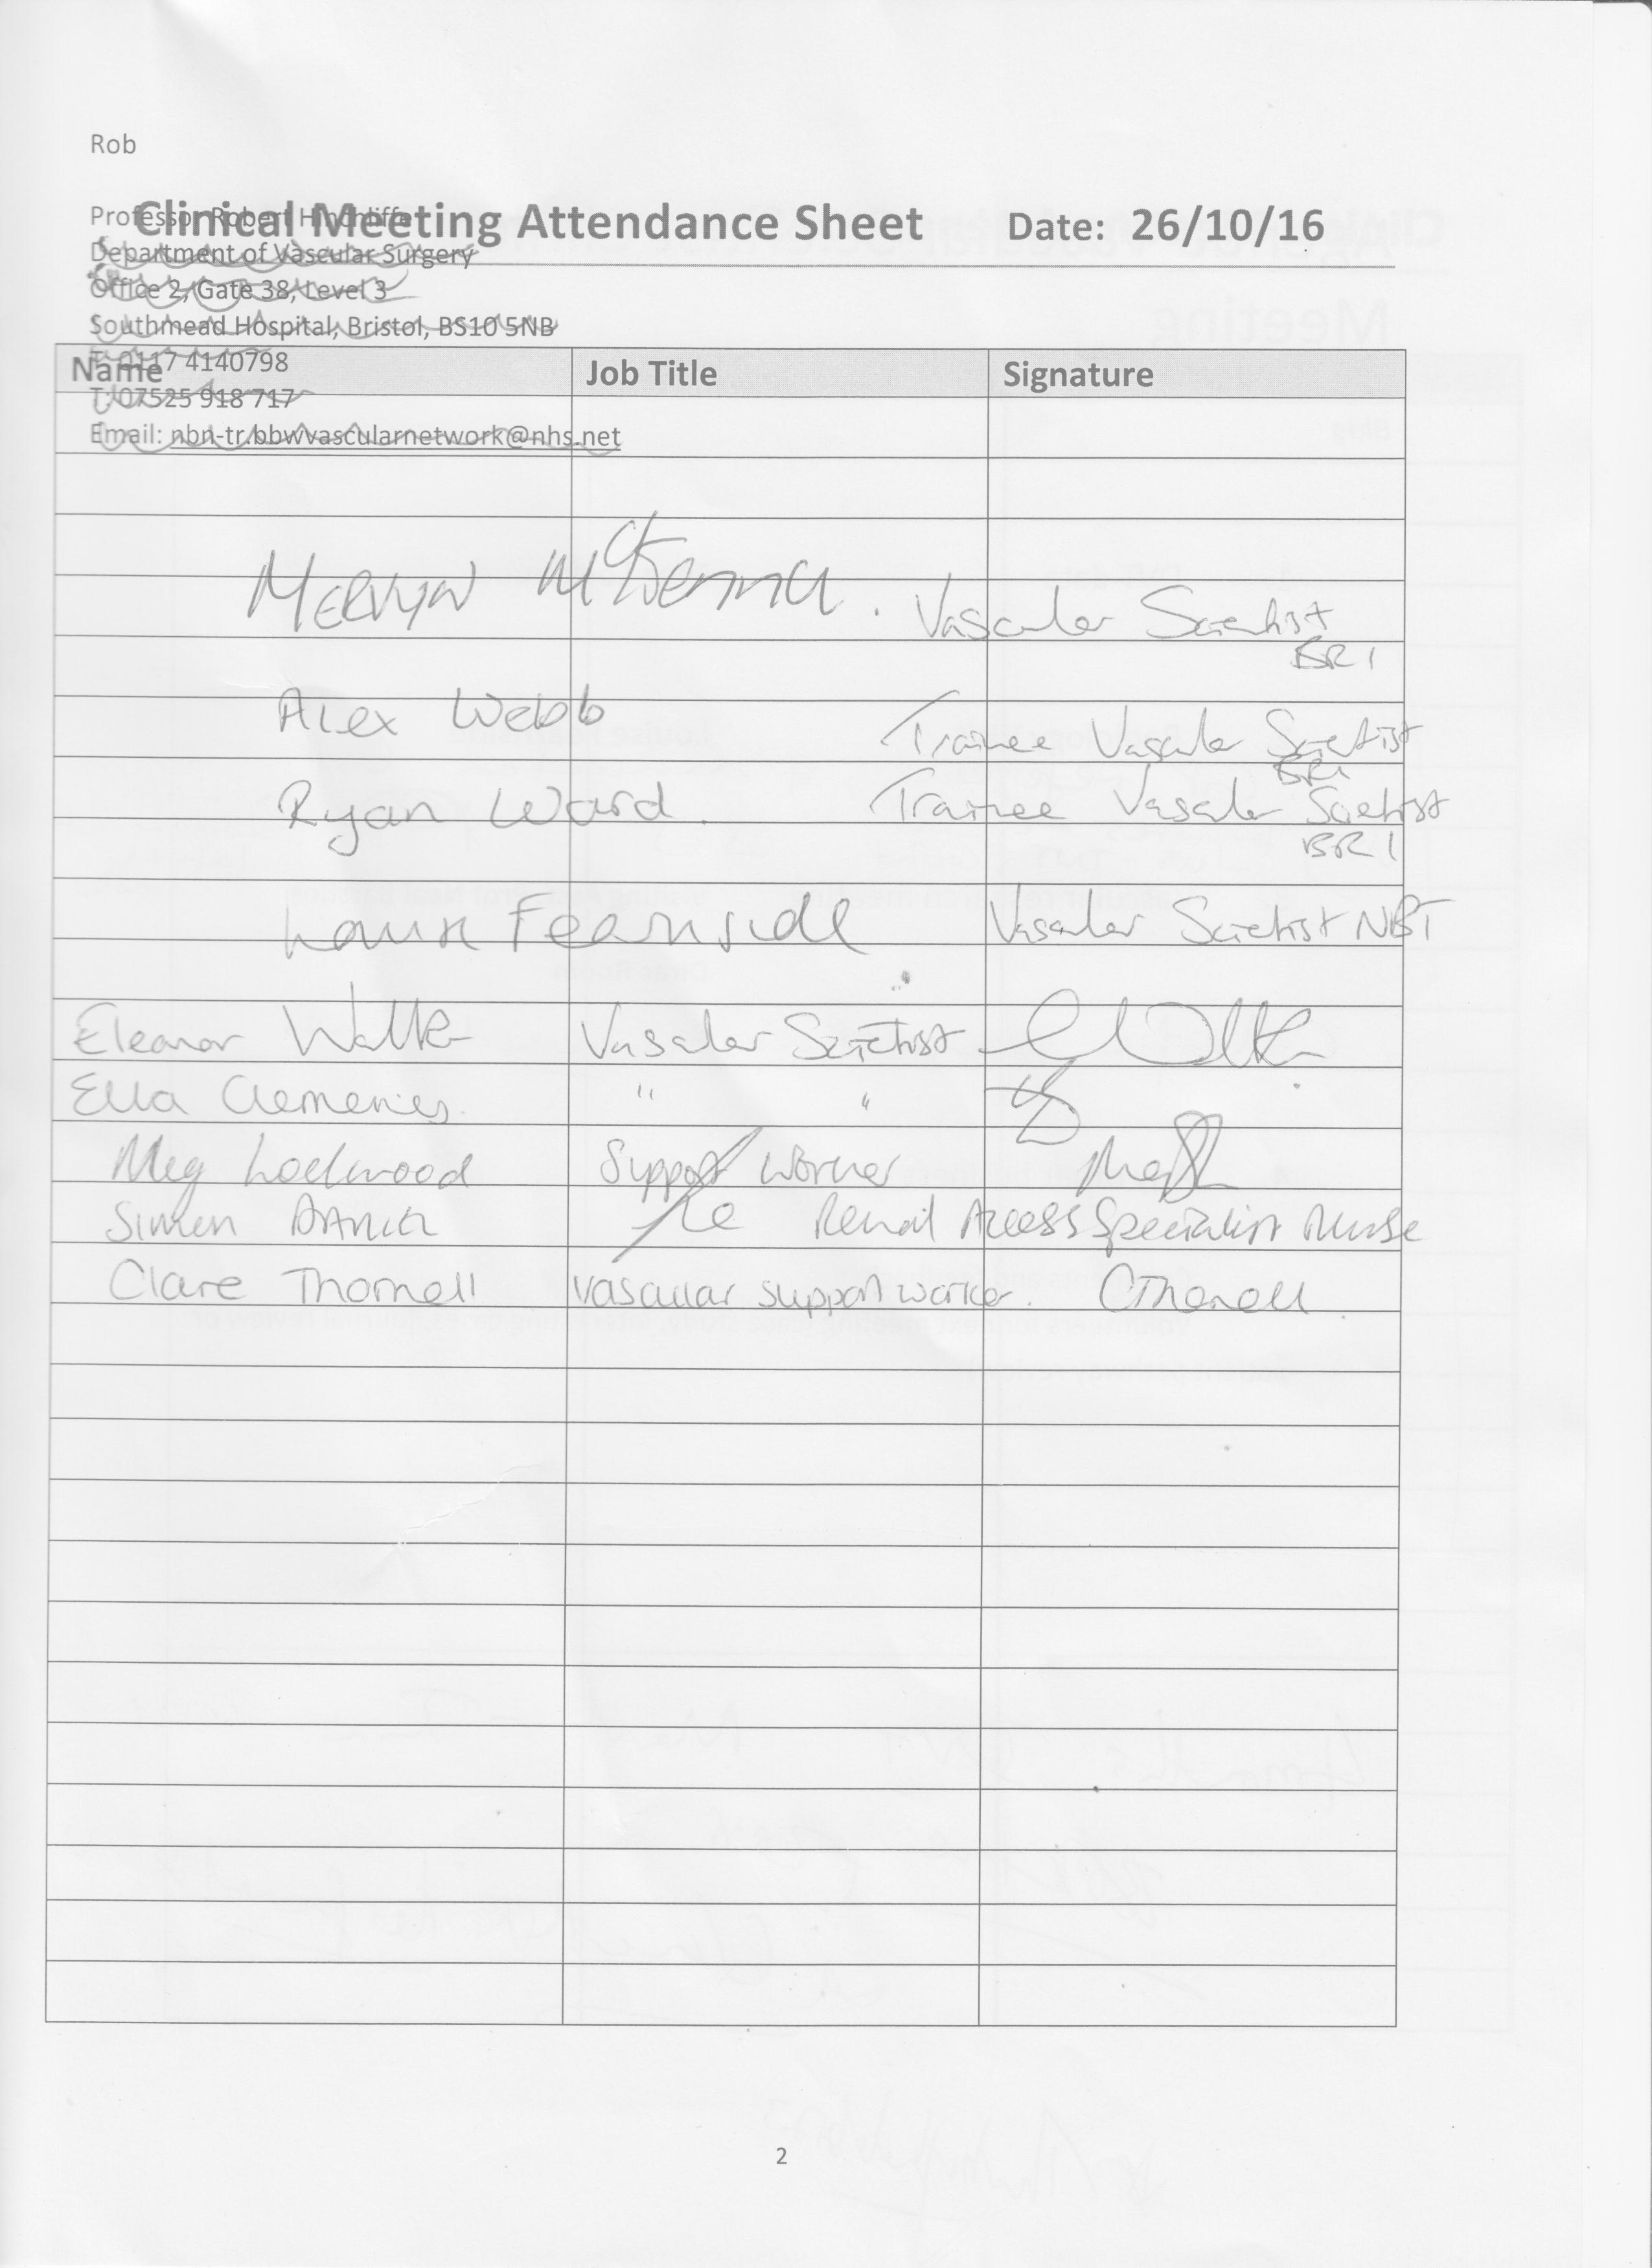 Rob
Professor Robert Hinchliffe
Clinical Meeting Attendance Sheet Date: 26/10/16
Department of Vascular Surgery
Office 2, Gate 38, Level 3
Southmead Hospital, Bristol, BS10 5NB
T: 0117 4140798
Name Job Title Signature
T: 07525 918 717
Email: nbn-tr.bbwvascularnetwork@nhs.net
MELVYN McKenna. Vascular Scientist
BRI
Alex Webb Trainee Vascular Scientist
BRI
Ryan Ward. Trainee Vascular Scientist
BRI
Fearnside Vascular Scientist NBT
Eleanor Walker Vascular Scientist
Ella Clemenies " "
Meg Lockwood Support Worker
Simon Renal Access Specialist Nurse
Clare Thornell Vascular support worker. CThornell
2